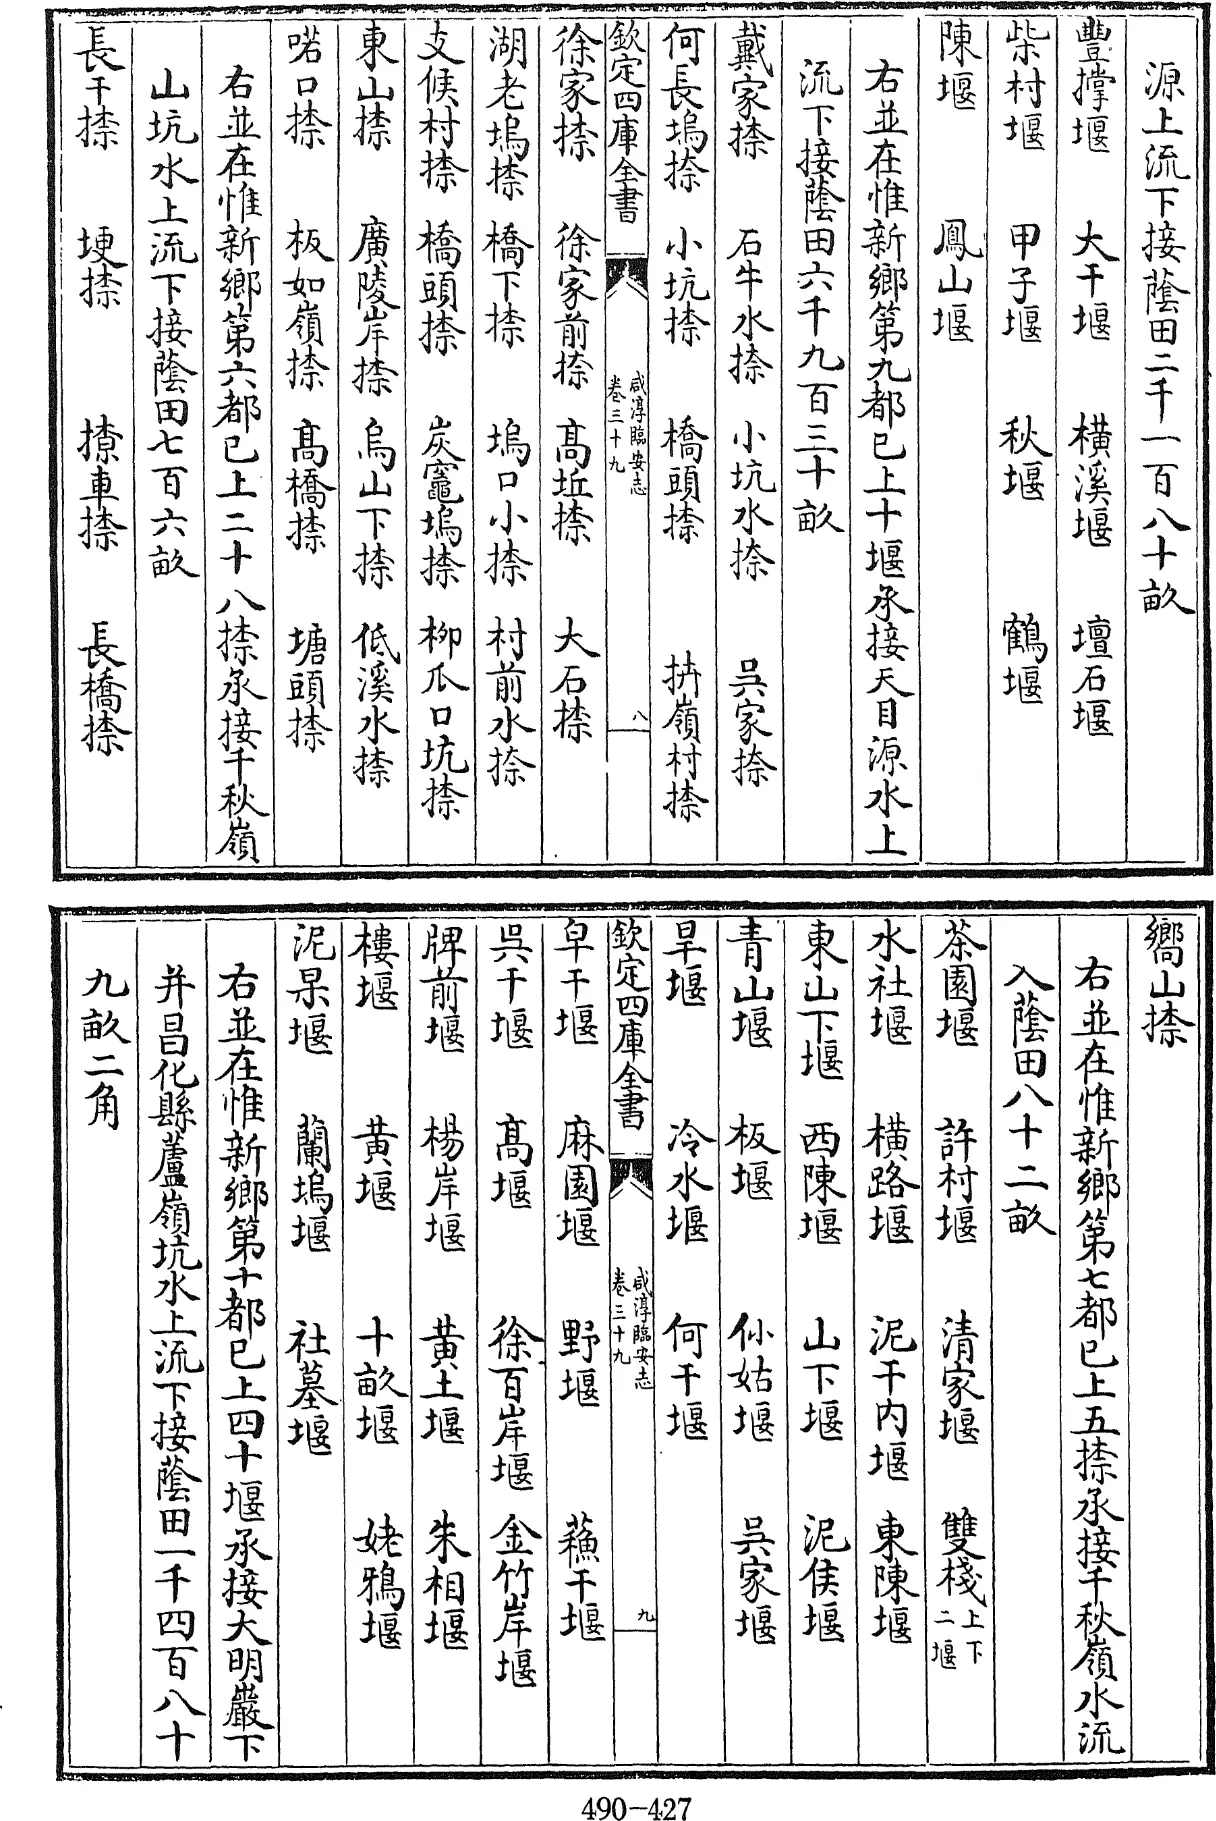 源上流下接蔭田二千一百八十畝
豐撑堰　大干堰　橫溪堰　壇石堰
柴村堰　甲子堰　秋堰　鶴堰
陳堰　鳳山堰
右並在惟新鄉第九都已上十堰承接天目源水上
流下接蔭田六千九百三十畝
戴家捺　石牛水捺　小坑水捺　吳家捺
何長塢捺　小坑捺　橋頭捺　拚嶺村捺
欽定四庫全書　咸淳臨安志卷三十九　八
徐家捺　徐家前捺　高坵捺　大石捺
湖老塢捺　橋下捺　塢口小捺　村前水捺
支候村捺　橋頭捺　炭竈塢捺　柳瓜口坑捺
東山捺　廣陵岸捺　烏山下捺　低溪水捺
喏口捺　板如嶺捺　高橋捺　塘頭捺
右並在惟新鄉第六都已上二十八捺承接千秋嶺
山坑水上流下接蔭田七百六畝
長干捺　埂捺　撩車捺　長橋捺
嚮山捺
右並在惟新鄉第七都已上五捺承接千秋嶺水流
入蔭田八十二畝
茶園堰　許村堰　清家堰　雙棧上下二堰
水社堰　橫路堰　泥干內堰　東陳堰
東山下堰　西陳堰　山下堰　泥侯堰
青山堰　板堰　仦姑堰　吳家堰
旱堰　冷水堰　何干堰
欽定四庫全書　咸淳臨安志卷三十九　九
皁干堰　麻園堰　野堰　蘓干堰
吳干堰　高堰　徐百岸堰　金竹岸堰
牌前堰　楊岸堰　黄土堰　朱相堰
樓堰　黄堰　十畝堰　姥鴉堰
泥杲堰　蘭塢堰　社墓堰
右並在惟新鄉第十都已上四十堰承接大明巖下
并昌化縣蘆嶺坑水上流下接蔭田一千四百八十
九畝二角
490-427